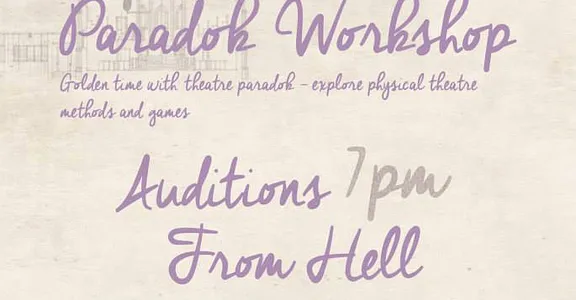 Paradok Workshop
Golden time with theatre paradok - explore physical theatre
methods and games
Auditions 7pm
From Hell